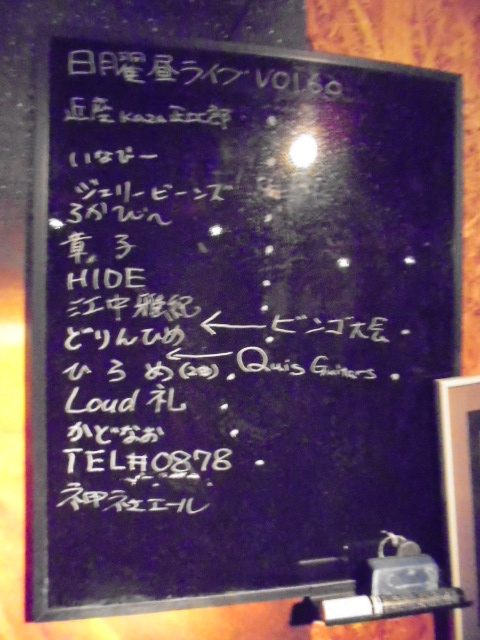 日曜昼ライブ VOl60
近座 Kaza 正比部
いなびー
ジェリービーンズ
るかぴん
章子
HIDE
江中雅紀
どりんひめ ← ビンゴ大会
ひろめ ← Quis Guitars
Loud 礼
かどなお
TEL#0878
神社エール